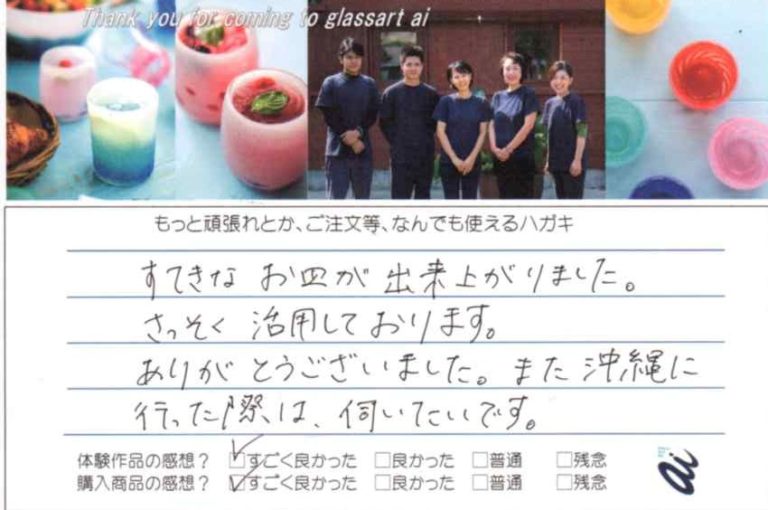 Thank you for coming to glassart ai
もっと頑張れとか、ご注文等、なんでも使えるハガキ
すてきな お皿が 出来上がりました。
さっそく 活用しております。
ありがとうございました。また 沖縄に
行った際は、伺いたいです。
体験作品の感想? ☑すごく良かった □良かった □普通 □残念
購入商品の感想? ☑すごく良かった □良かった □普通 □残念
ai